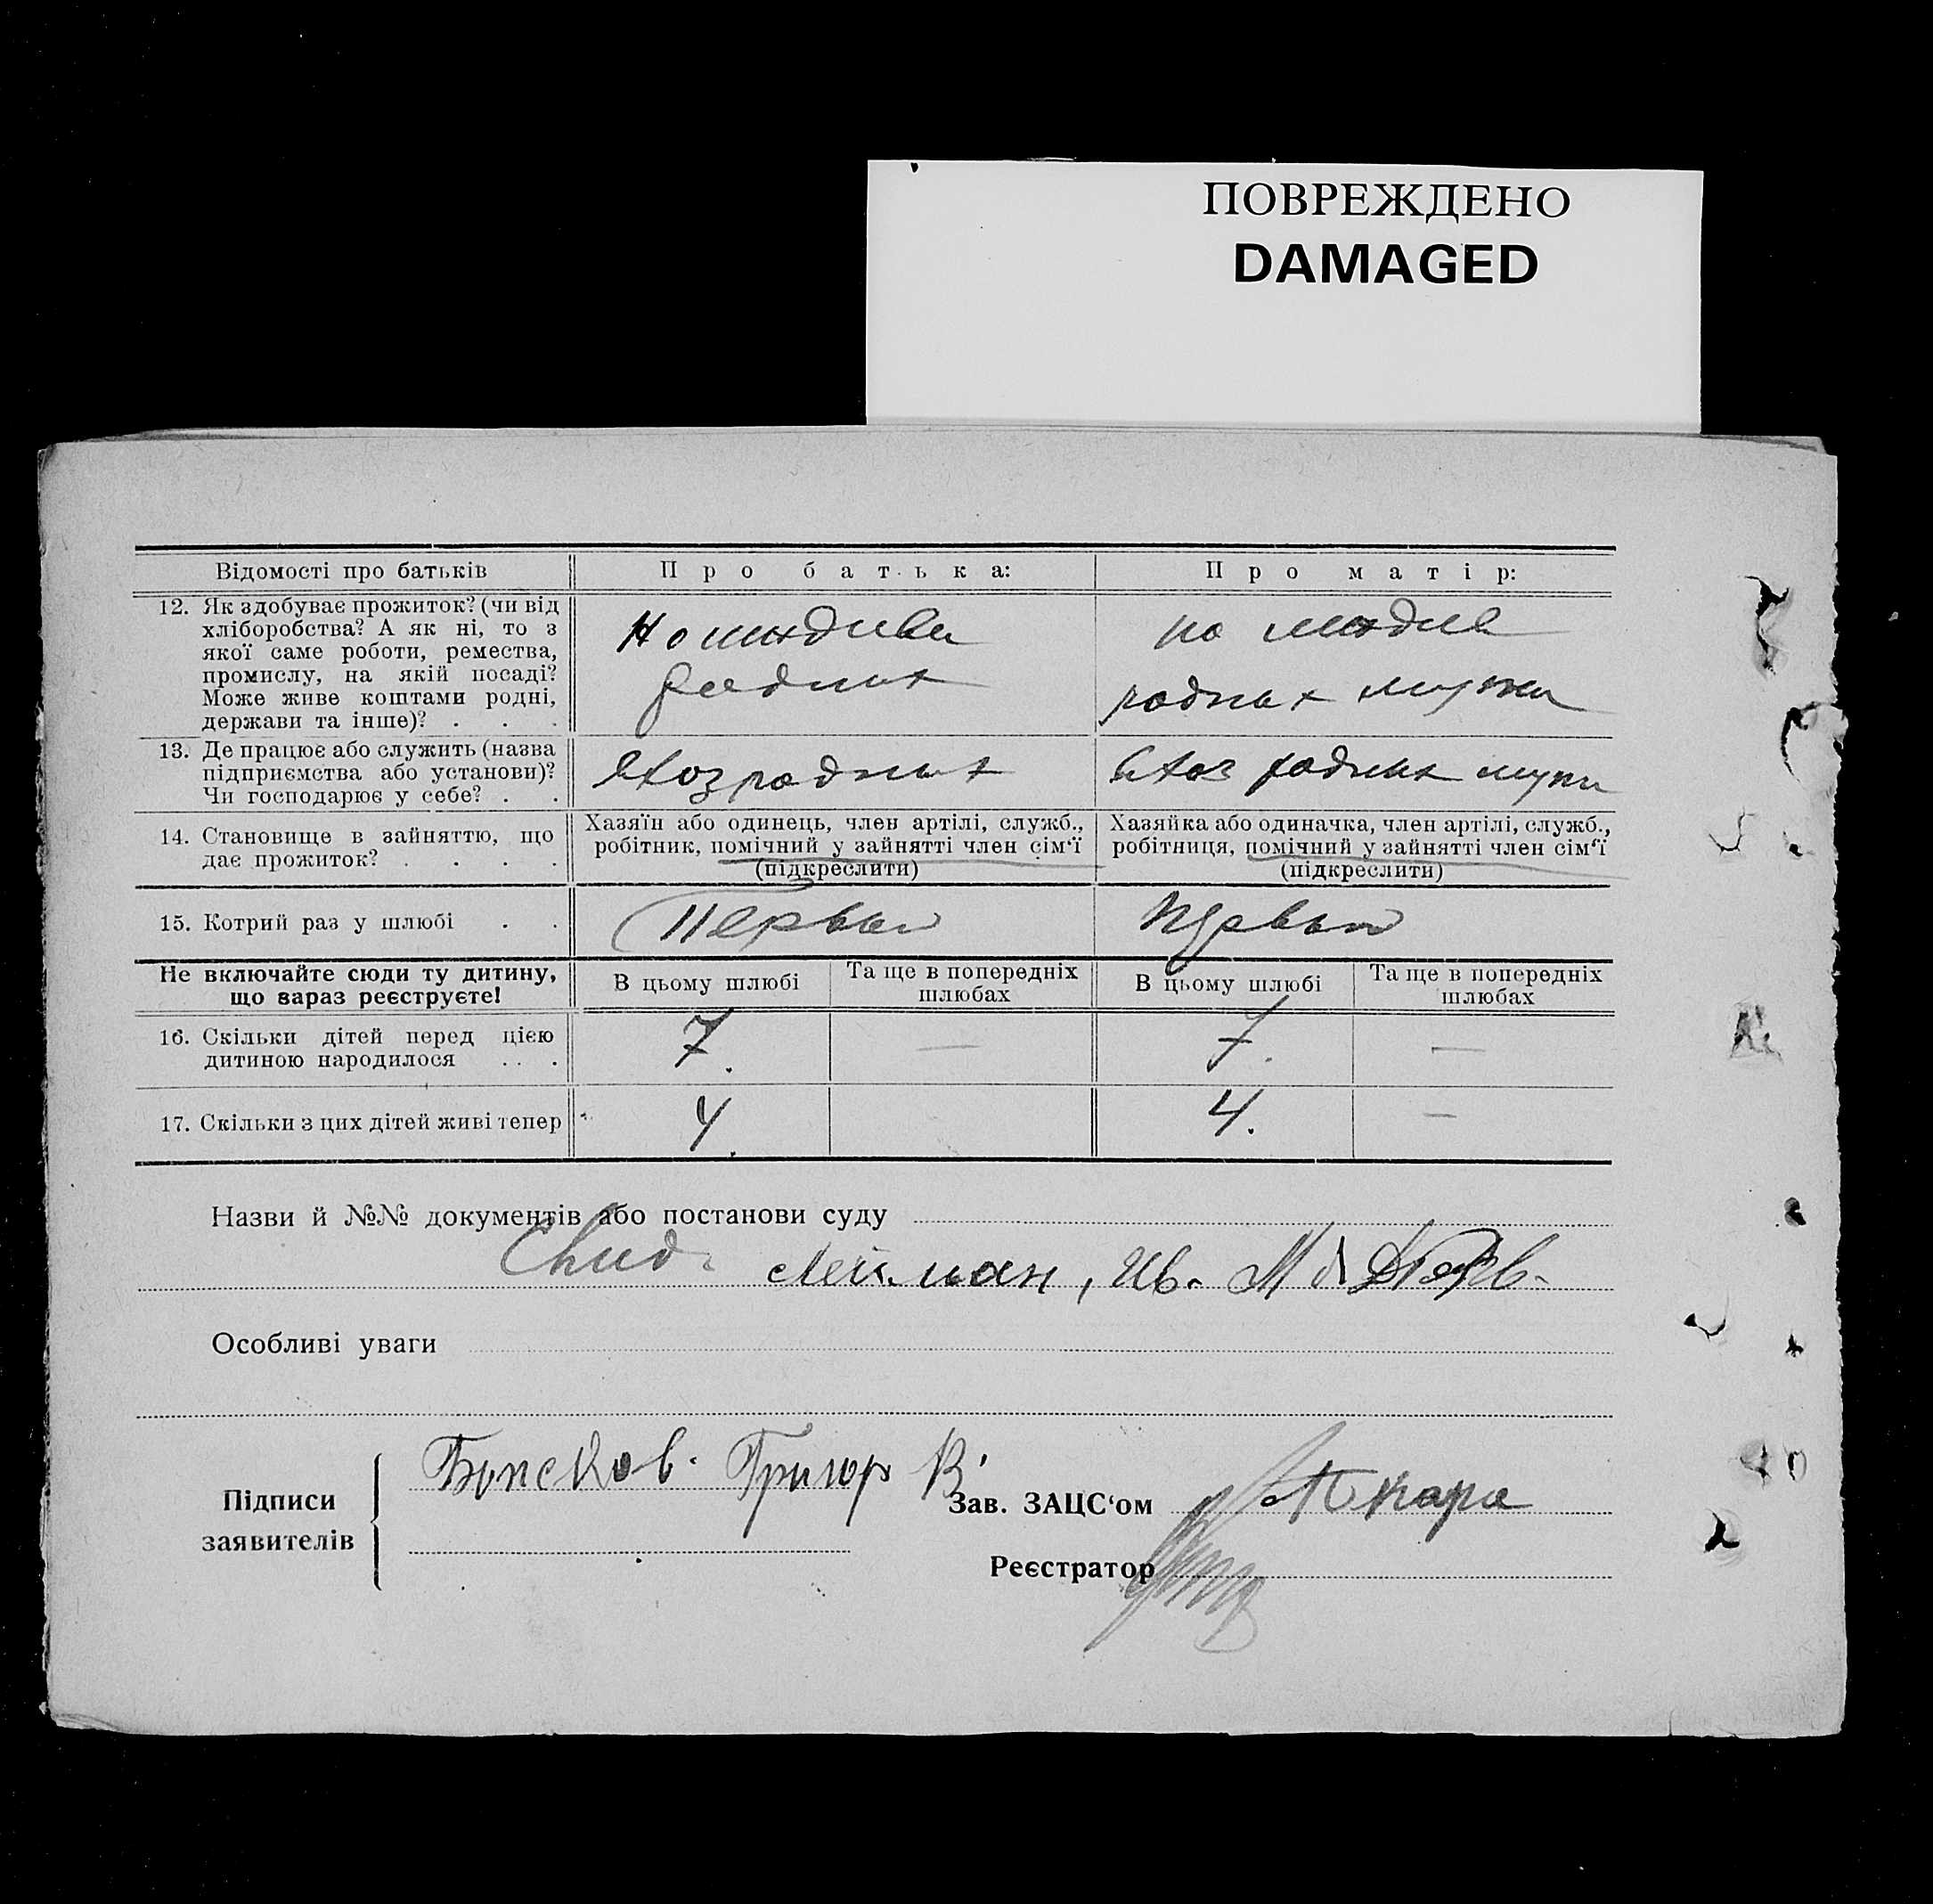 ПОВРЕЖДЕНО
DAMAGED
Відомості про батьків
Про батька:
Про матір:
12. Як здобуває прожиток? (чи від
хліборобства? А як ні, то з
якої саме роботи, ремества,
промислу, на якій посаді?
Може живе коштами родні,
держави та інше)? . . .
родных
на
родных мужа
13. Де працює або служить (назва
підприємства або установи)?
Чи господарює у себе? . .
родных
родных мужа
14. Становище в зайняттю, що
дає прожиток? . . . .
Хазяїн або одинець, член артілі, служб.,
робітник, помічний у зайнятті член сім'ї
(підкреслити)
Хазяйка або одиначка, член артілі, служб.,
робітниця, помічний у зайнятті член сім'ї
(підкреслити)
15. Котрий раз у шлюбі . .
Первый
Первый
Не включайте сюди ту дитину,
що зараз реєструєте!
В цьому шлюбі
Та ще в попередніх
шлюбах
В цьому шлюбі
Та ще в попередніх
шлюбах
16. Скільки дітей перед цією
дитиною народилося . . .
7. — 7. —
17. Скільки з цих дітей живі тепер
4. 4. —
Назви й №№ документів або постанови суду
Особливі уваги
Підписи
заявителів
Григор В.
Зав. ЗАЦС'ом
Реєстратор